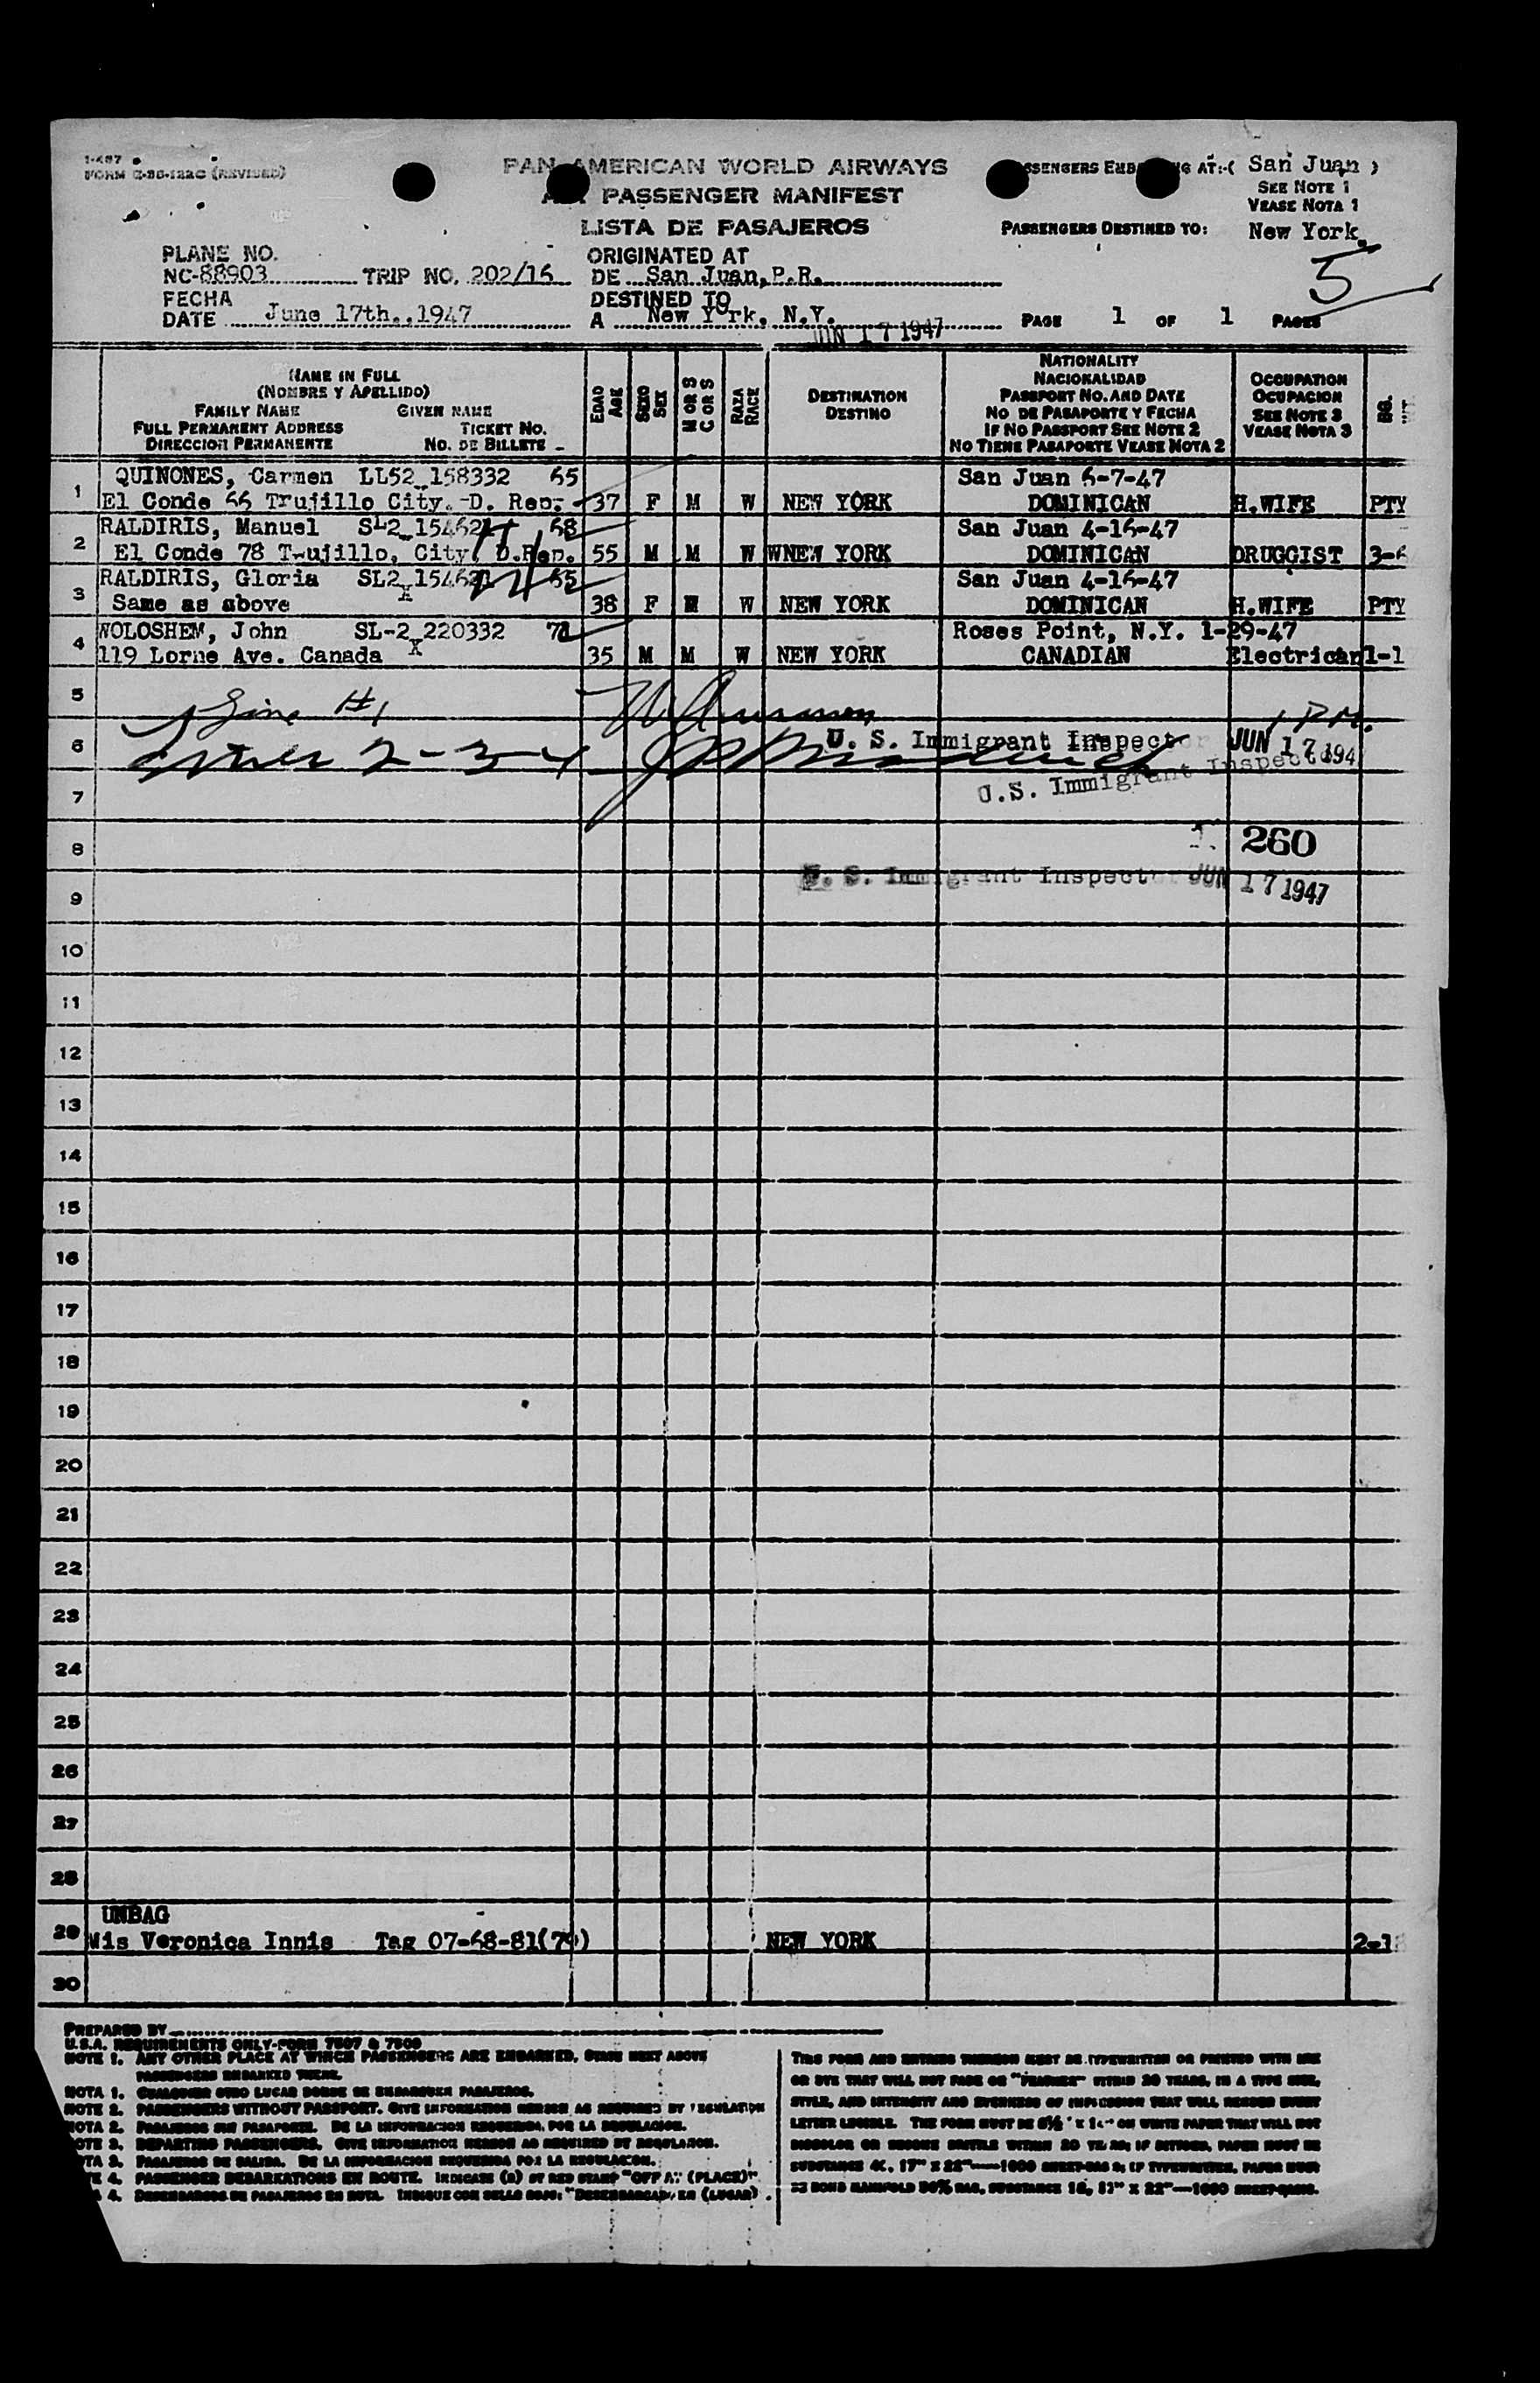 I-457
FORM (REVISED)
PAN AMERICAN WORLD AIRWAYS
PASSENGER MANIFEST
LISTA DE PASAJEROS
AT:-( San Juan )
SEE NOTE 1
VEASE NOTA 1
PASSENGERS DESTINED TO: New York
5
PLANE NO.
NC-88903 TRIP NO. 202/16
ORIGINATED AT
DE San Juan, P.R.
FECHA
DATE June 17th.,1947
DESTINED TO
A New York, N.Y.
JUN 17 1947
PAGE 1 OF 1 PAGES
NAME IN FULL
(NOMBRE Y APELLIDO)
FAMILY NAME GIVEN NAME
FULL PERMANENT ADDRESS TICKET NO.
DIRECCION PERMANENTE NO. DE BILLETE
EDAD
AGE
SEXO
SEX
M OR S
C OR S
RAZA
RACE
DESTINATION
DESTINO
NATIONALITY
NACIONALIDAD
PASSPORT NO. AND DATE
NO DE PASAPORTE Y FECHA
IF NO PASSPORT SEE NOTE 2
NO TIENE PASAPORTE VEASE NOTA 2
OCCUPATION
OCUPACION
SEE NOTE 3
VEASE NOTA 3
BG.
1 QUINONES, Carmen LL52 158332 65 San Juan 6-7-47
El Conde 66 Trujillo City. D. Rep. 37 F M W NEW YORK DOMINICAN H.WIFE PTY
2 RALDIRIS, Manuel SL2 154621 68 San Juan 4-16-47
El Conde 78 Trujillo, City, D.Rep. 55 M M W WNEW YORK DOMINICAN DRUGGIST 3-6
3 RALDIRIS, Gloria SL2 154621 65 San Juan 4-16-47
Same as above X 38 F M W NEW YORK DOMINICAN H.WIFE PTY
4 WOLOSHEM, John SL-2 220332 Roses Point, N.Y. 1-29-47
119 Lorne Ave. Canada X 35 M M W NEW YORK CANADIAN Electrican 1-1
5 Line #1 1 P.M.
6 2-3-4 U. S. Immigrant Inspector JUN 17 194
7 U.S. Immigrant Inspector
8 260
U. S. Immigrant Inspector JUN 17 1947
9
10
11
12
13
14
15
16
17
18
19
20
21
22
23
24
25
26
27
28
UNBAG
29 Mis Veronica Innis Tag 07-68-81(79) NEW YORK 2-18
30
PREPARED BY
U.S.A. REQUIREMENTS ONLY-FORM 7507 & 7509
NOTE 1. ANY OTHER PLACE AT WHICH PASSENGERS ARE EMBARKED, STATE NEXT ABOVE
PASSENGERS EMBARKED THERE.
NOTA 1. CUALQUIER OTRO LUGAR DONDE SE EMBARQUEN PASAJEROS.
NOTE 2. PASSENGERS WITHOUT PASSPORT. GIVE INFORMATION HEREON AS REQUIRED BY REGULATION
NOTA 2. PASAJEROS SIN PASAPORTE. DE LA INFORMACION REQUERIDA POR LA REGULACION.
OTE 3. DEPARTING PASSENGERS. GIVE INFORMATION HEREON AS REQUIRED BY REGULATION.
TA 3. PASAJEROS DE SALIDA. DE LA INFORMACION REQUERIDA POR LA REGULACION.
TE 4. PASSENGER DEBARKATIONS EN ROUTE. INDICATE (B) BY RED STAMP "OFF AT (PLACE)"
4. DESEMBARCOS DE PASAJEROS EN RUTA. INDIQUE CON SELLO ROJO: "DESEMBARCADO EN (LUGAR)
THIS FORM AND ENTRIES THEREON MUST BE TYPEWRITTEN OR PRINTED WITH INK
OR DYE THAT WILL NOT FADE OR "FEATHER" WITHIN 20 YEARS, IN A TYPE SIZE,
STYLE, AND INTENSITY AND EVENNESS OF IMPRESSION THAT WILL RENDER EVERY
LETTER LEGIBLE. THE FORM MUST BE 8½" X 14" ON WHITE PAPER THAT WILL NOT
DISCOLOR OR BECOME BRITTLE WITHIN 20 YEARS; IF DITTOED, PAPER MUST BE
SUBSTANCE 40, 17" X 22"—1000 SHEET-BASIS; IF TYPEWRITTEN, PAPER MUST
BE BOND MANIFOLD 50% RAG, SUBSTANCE 16, 17" X 22"—1000 SHEET-BASIS.